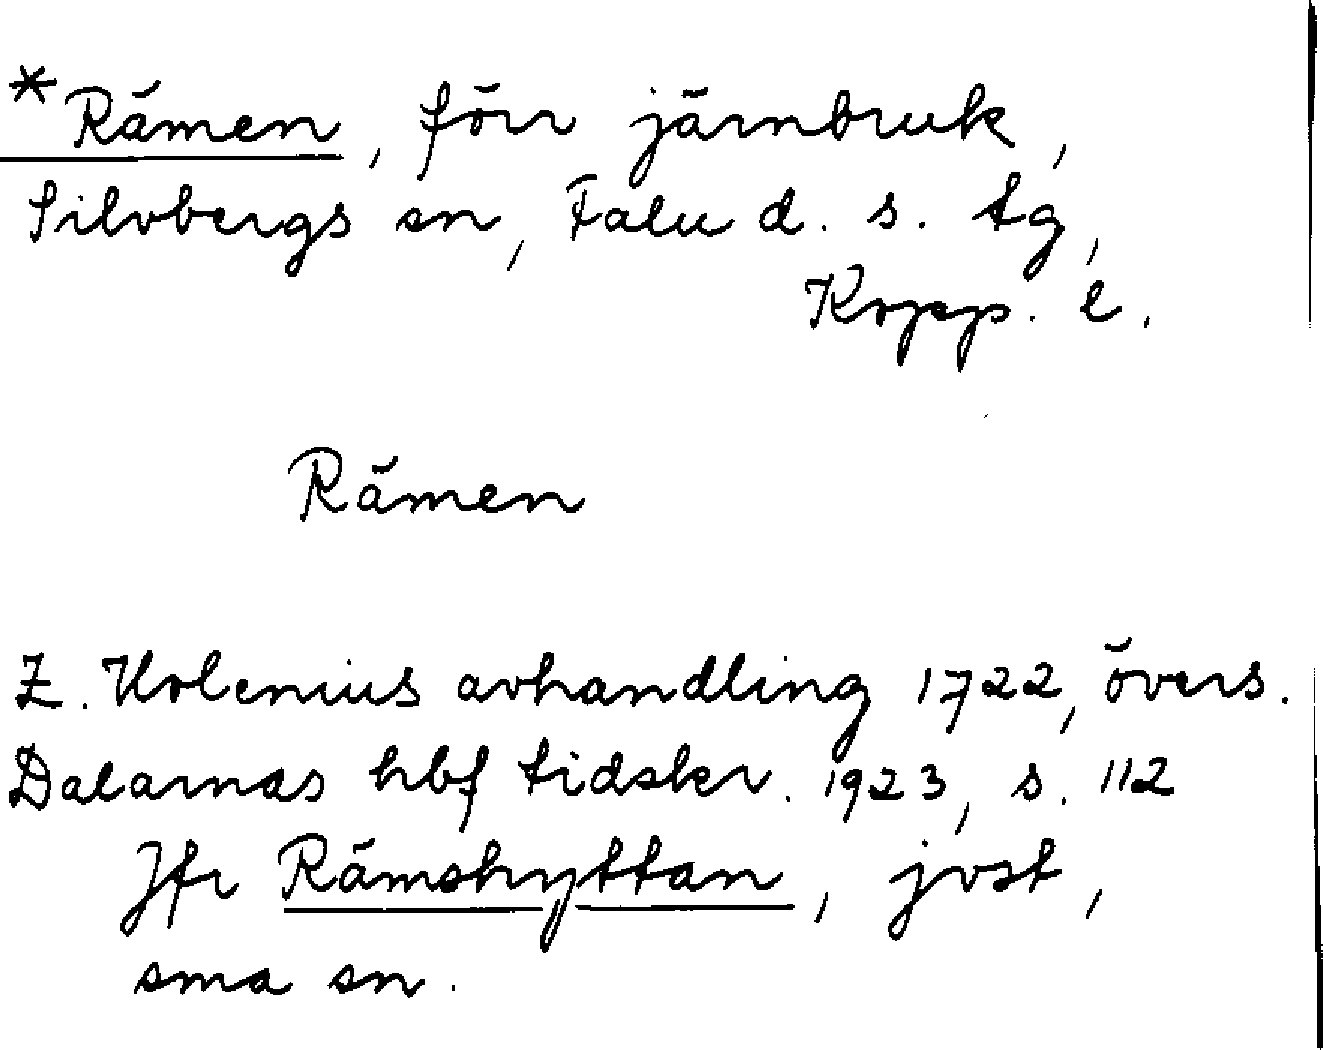 *Rämen, förr järnbruk,
Silvbergs sn, Falu d. s. tg,
Kopp. l.
Rämen
Z. Holenius avhandling 1722, övers.
Dalarnas hbf tidskr. 1923, s. 112
Jfr Rämshyttan, jvst,
sma sn.